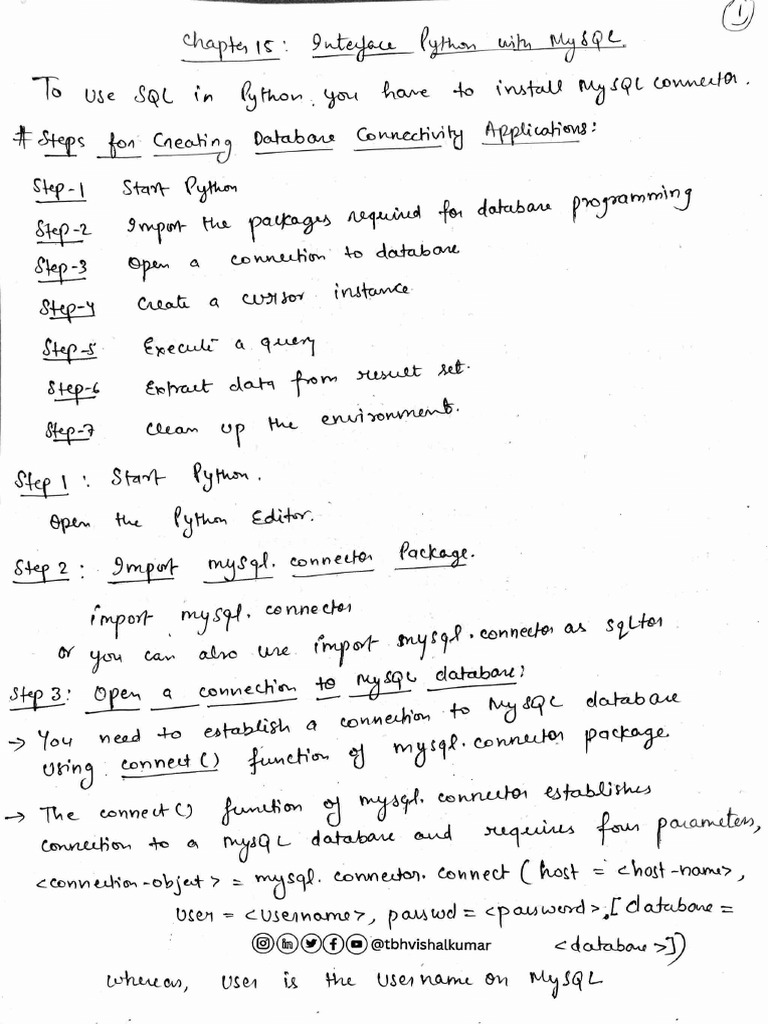 1
Chapter 15: Interface Python with MySQL
To use SQL in Python, you have to install MySQL connector.
# Steps for Creating Database Connectivity Applications:
Step-1 Start Python
Step-2 Import the packages required for database programming
Step-3 Open a connection to database
Step-4 Create a cursor instance
Step-5 Execute a query
Step-6 Extract data from result set.
Step-7 Clean up the environment.
Step 1: Start Python.
Open the Python Editor.
Step 2: Import mysql.connector Package.
import mysql.connector
or you can also use import mysql.connector as sqltor
Step 3: Open a connection to MySQL database:
→ You need to establish a connection to MySQL database
using connect() function of mysql.connector package
→ The connect() function of mysql.connector establishes
connection to a MySQL database and requires four parameters,
<connection-object> = mysql.connector.connect(host = <host-name>,
user = <username>, passwd = <password>,[database =
<database>])
@tbhvishalkumar
whereas, user is the username on MySQL